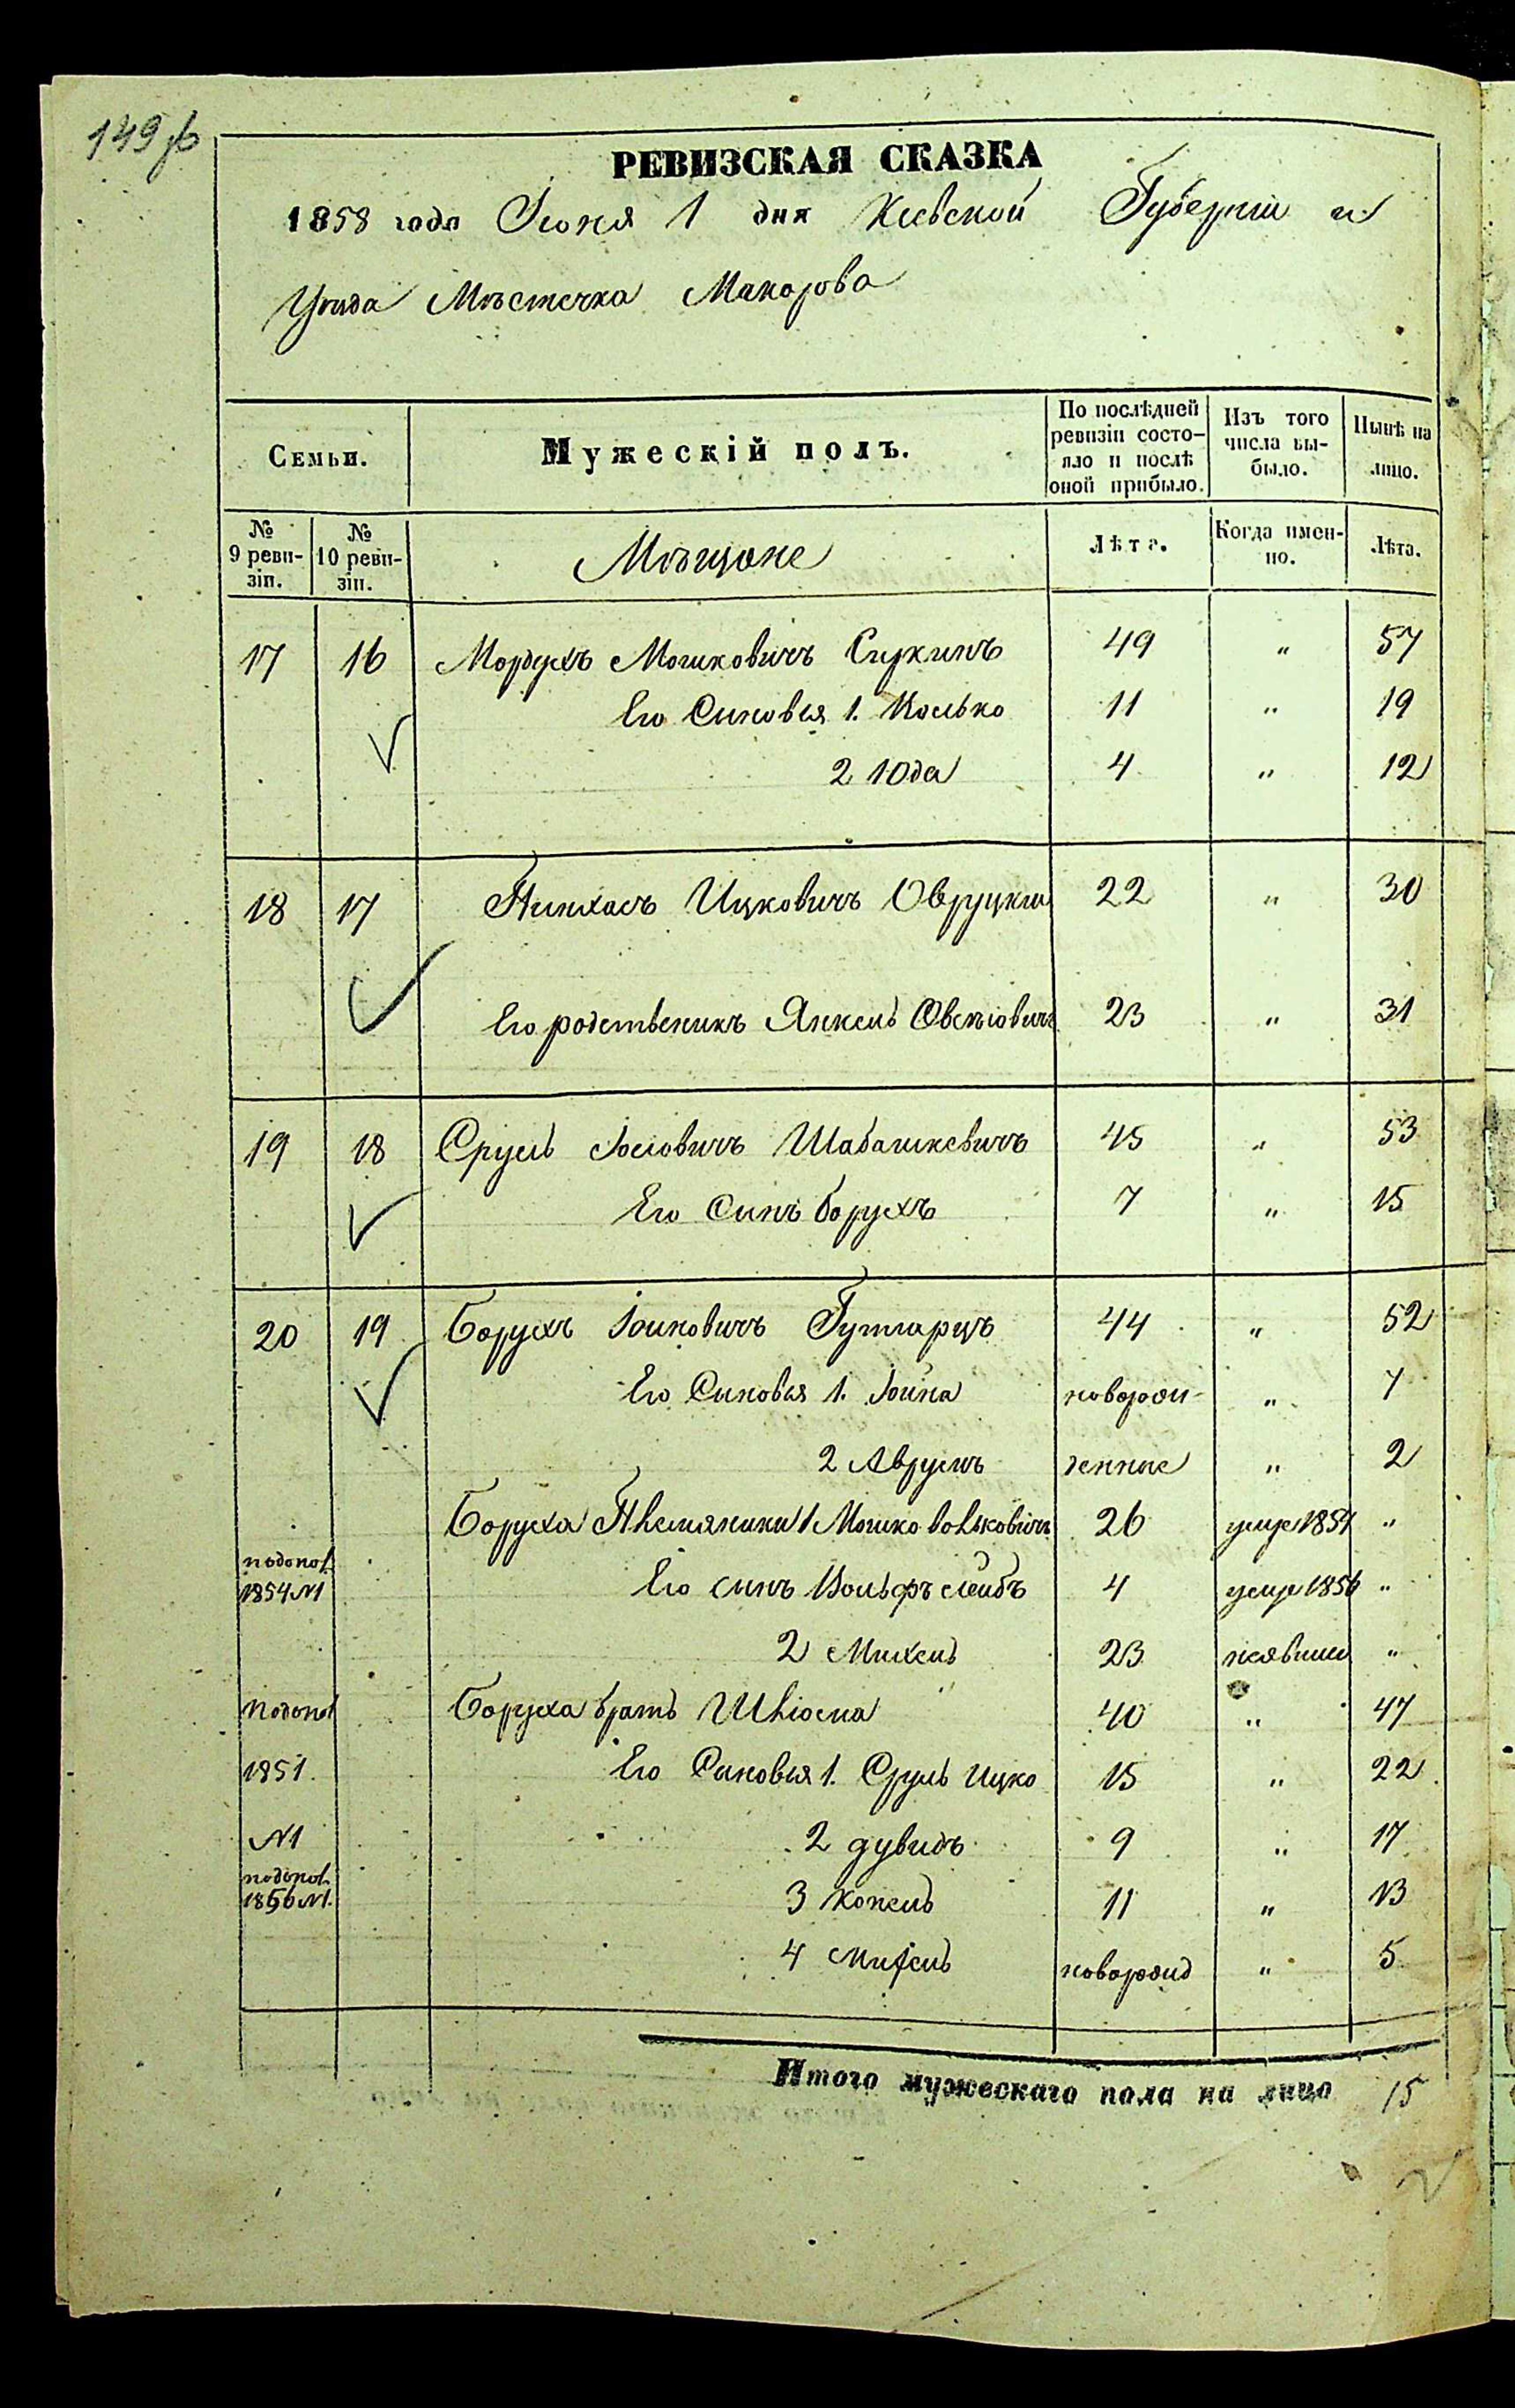 149 об
РЕВИЗСКАЯ СКАЗКА
1858 года Іюня 1 дня Кіевской Губерніи и
Уѣзда Мѣстечка Макарова
Семьи. Мужескій полъ. По послѣдней ревизіи состояло и послѣ оной прибыло. Изъ того числа выбыло. Нынѣ на лицо.
№ 9 ревизіи. № 10 ревизіи. Мѣщане Лѣта. Когда именно. Лѣта.
17 16 Мордухъ Мошковичъ Сиркинъ 49 " 57
Его Синовья 1. Иосько 11 " 19
2 Юда 4 " 12
18 17 Пинхасъ Ицковичъ Овруцкій 22 " 30
Его родственикъ Янкель Овсѣіовичъ 23 " 31
19 18 Сруль Іосіовичъ Шабашкевичъ 45 " 53
Его Синъ Борухъ 7 " 15
20 19 Борухъ Іоиновичъ Гутгарцъ 44 " 52
Его Синовья 1. Іойна новорож- " 7
2 Аврумъ денные " 2
Боруха Племяники 1 Мошко Вольковичъ 26 умре 1854 "
подопол. 1854 N1 Его синъ Вольфъ лейбъ 4 умре 1856 "
2 Михель 23 неявки "
Подопол Боруха братъ Шліома 40 " 47
1851. Его Синовья 1. Сруль Ицко 15 " 22
N1 2 дувидъ 9 " 17
подопол. 1856 N1. 3 Копель 11 " 13
4 Михель новорожд " 5
Итого мужескаго пола на лицо 15